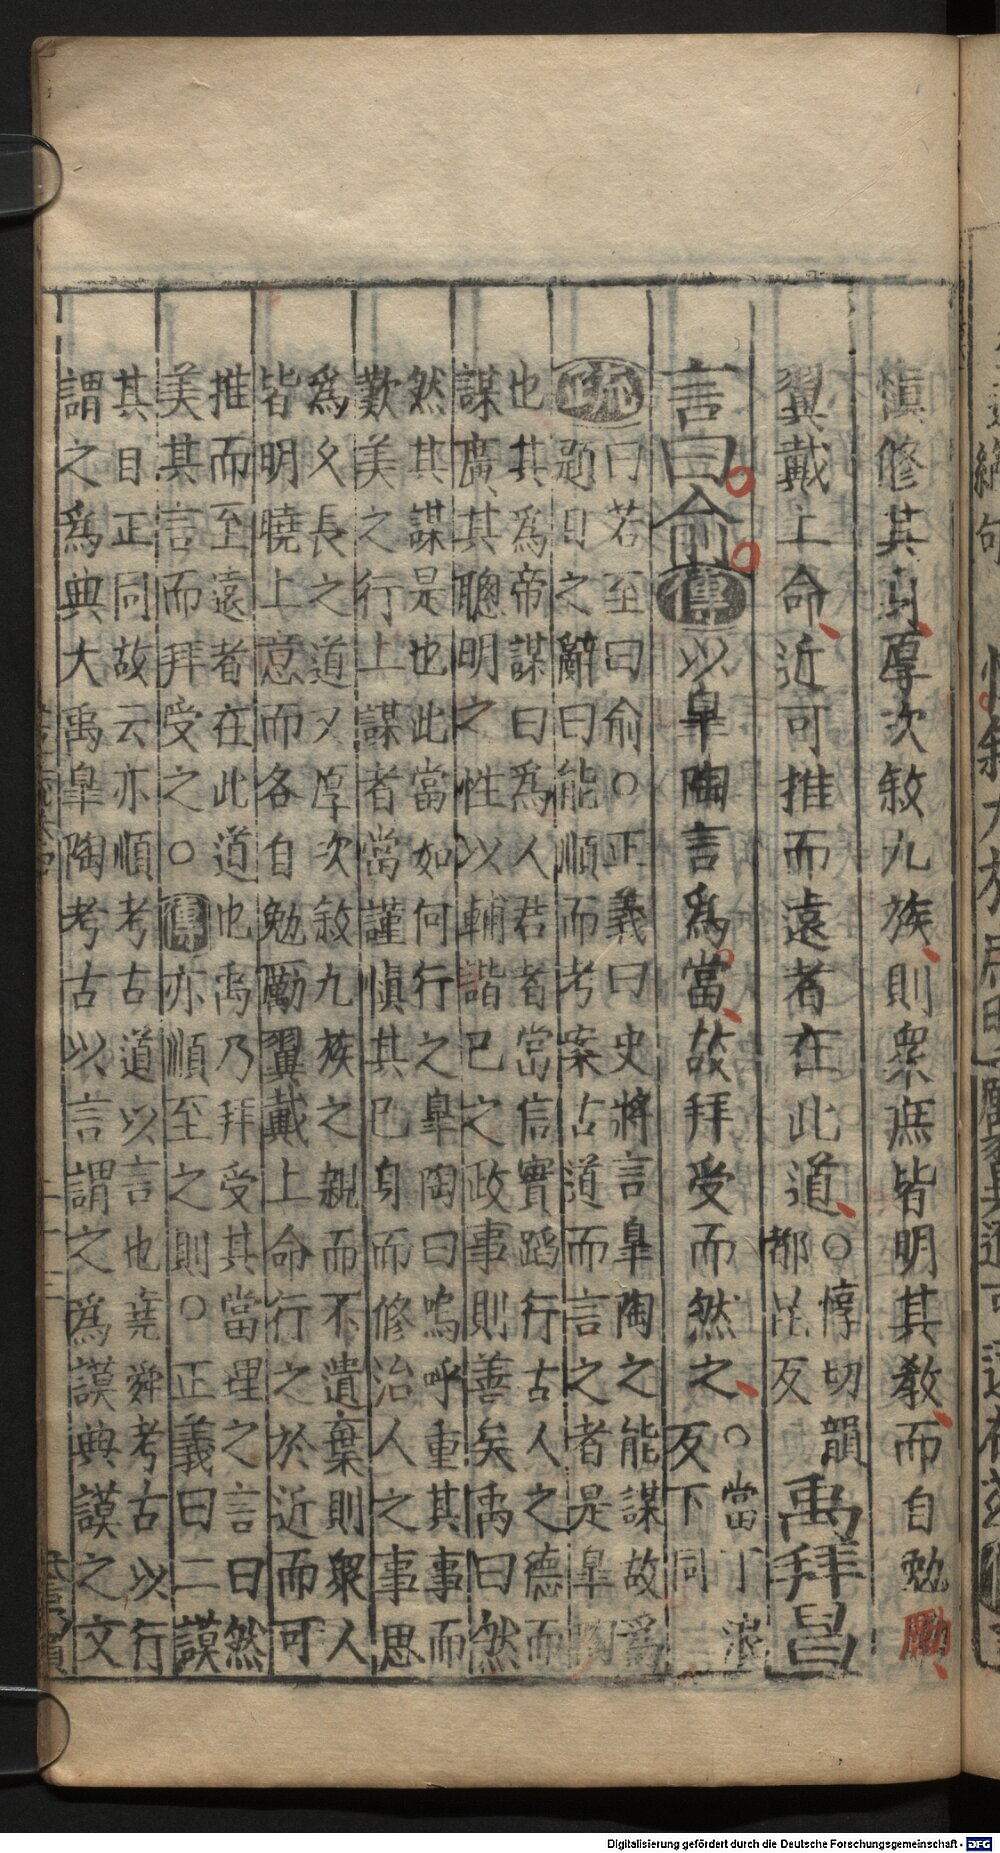 慎修其身厚次敘九族則衆庶皆明其教而自勉勵
翼戴上命近可推而遠者在此道○惇切韻
都昆反
禹拜昌
言曰俞傳以皐陶言爲當故拜受而然之○當丁浪
反下同
疏曰若至曰俞○正義曰史將言皐陶之能謀故爲
題目之辭曰能順而考案古道而言之者是皐陶
也其爲帝謀曰爲人君者當信實蹈行古人之德而
謀廣其聰明之性以輔諧己之政事則善矣禹曰然
然其謀是也此當如何行之皐陶曰嗚呼重其事而
歎美之行上謀者當謹慎其己身而修治人之事思
爲久長之道又厚次敘九族之親而不遺棄則衆人
皆明曉上意而各自勉勵翼戴上命行之於近而可
推而至遠者在此道也禹乃拜受其當理之言曰然
美其言而拜受之○傳亦順至之則○正義曰二謨
其目正同故云亦順考古道以言也堯舜考古以行
謂之爲典大禹皐陶考古以言謂之爲謨典謨之文
Digitalisierung gefördert durch die Deutsche Forschungsgemeinschaft - DFG